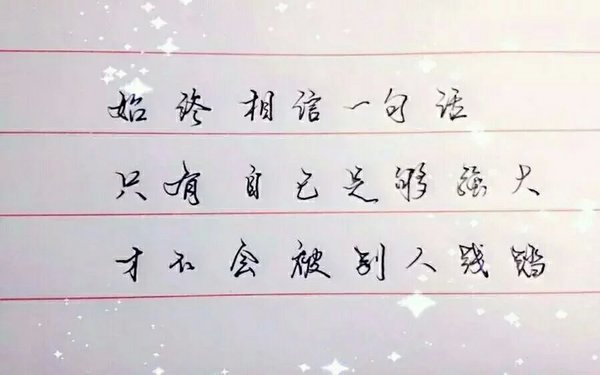 始终相信一句话
只有自己足够强大
才不会被别人践踏